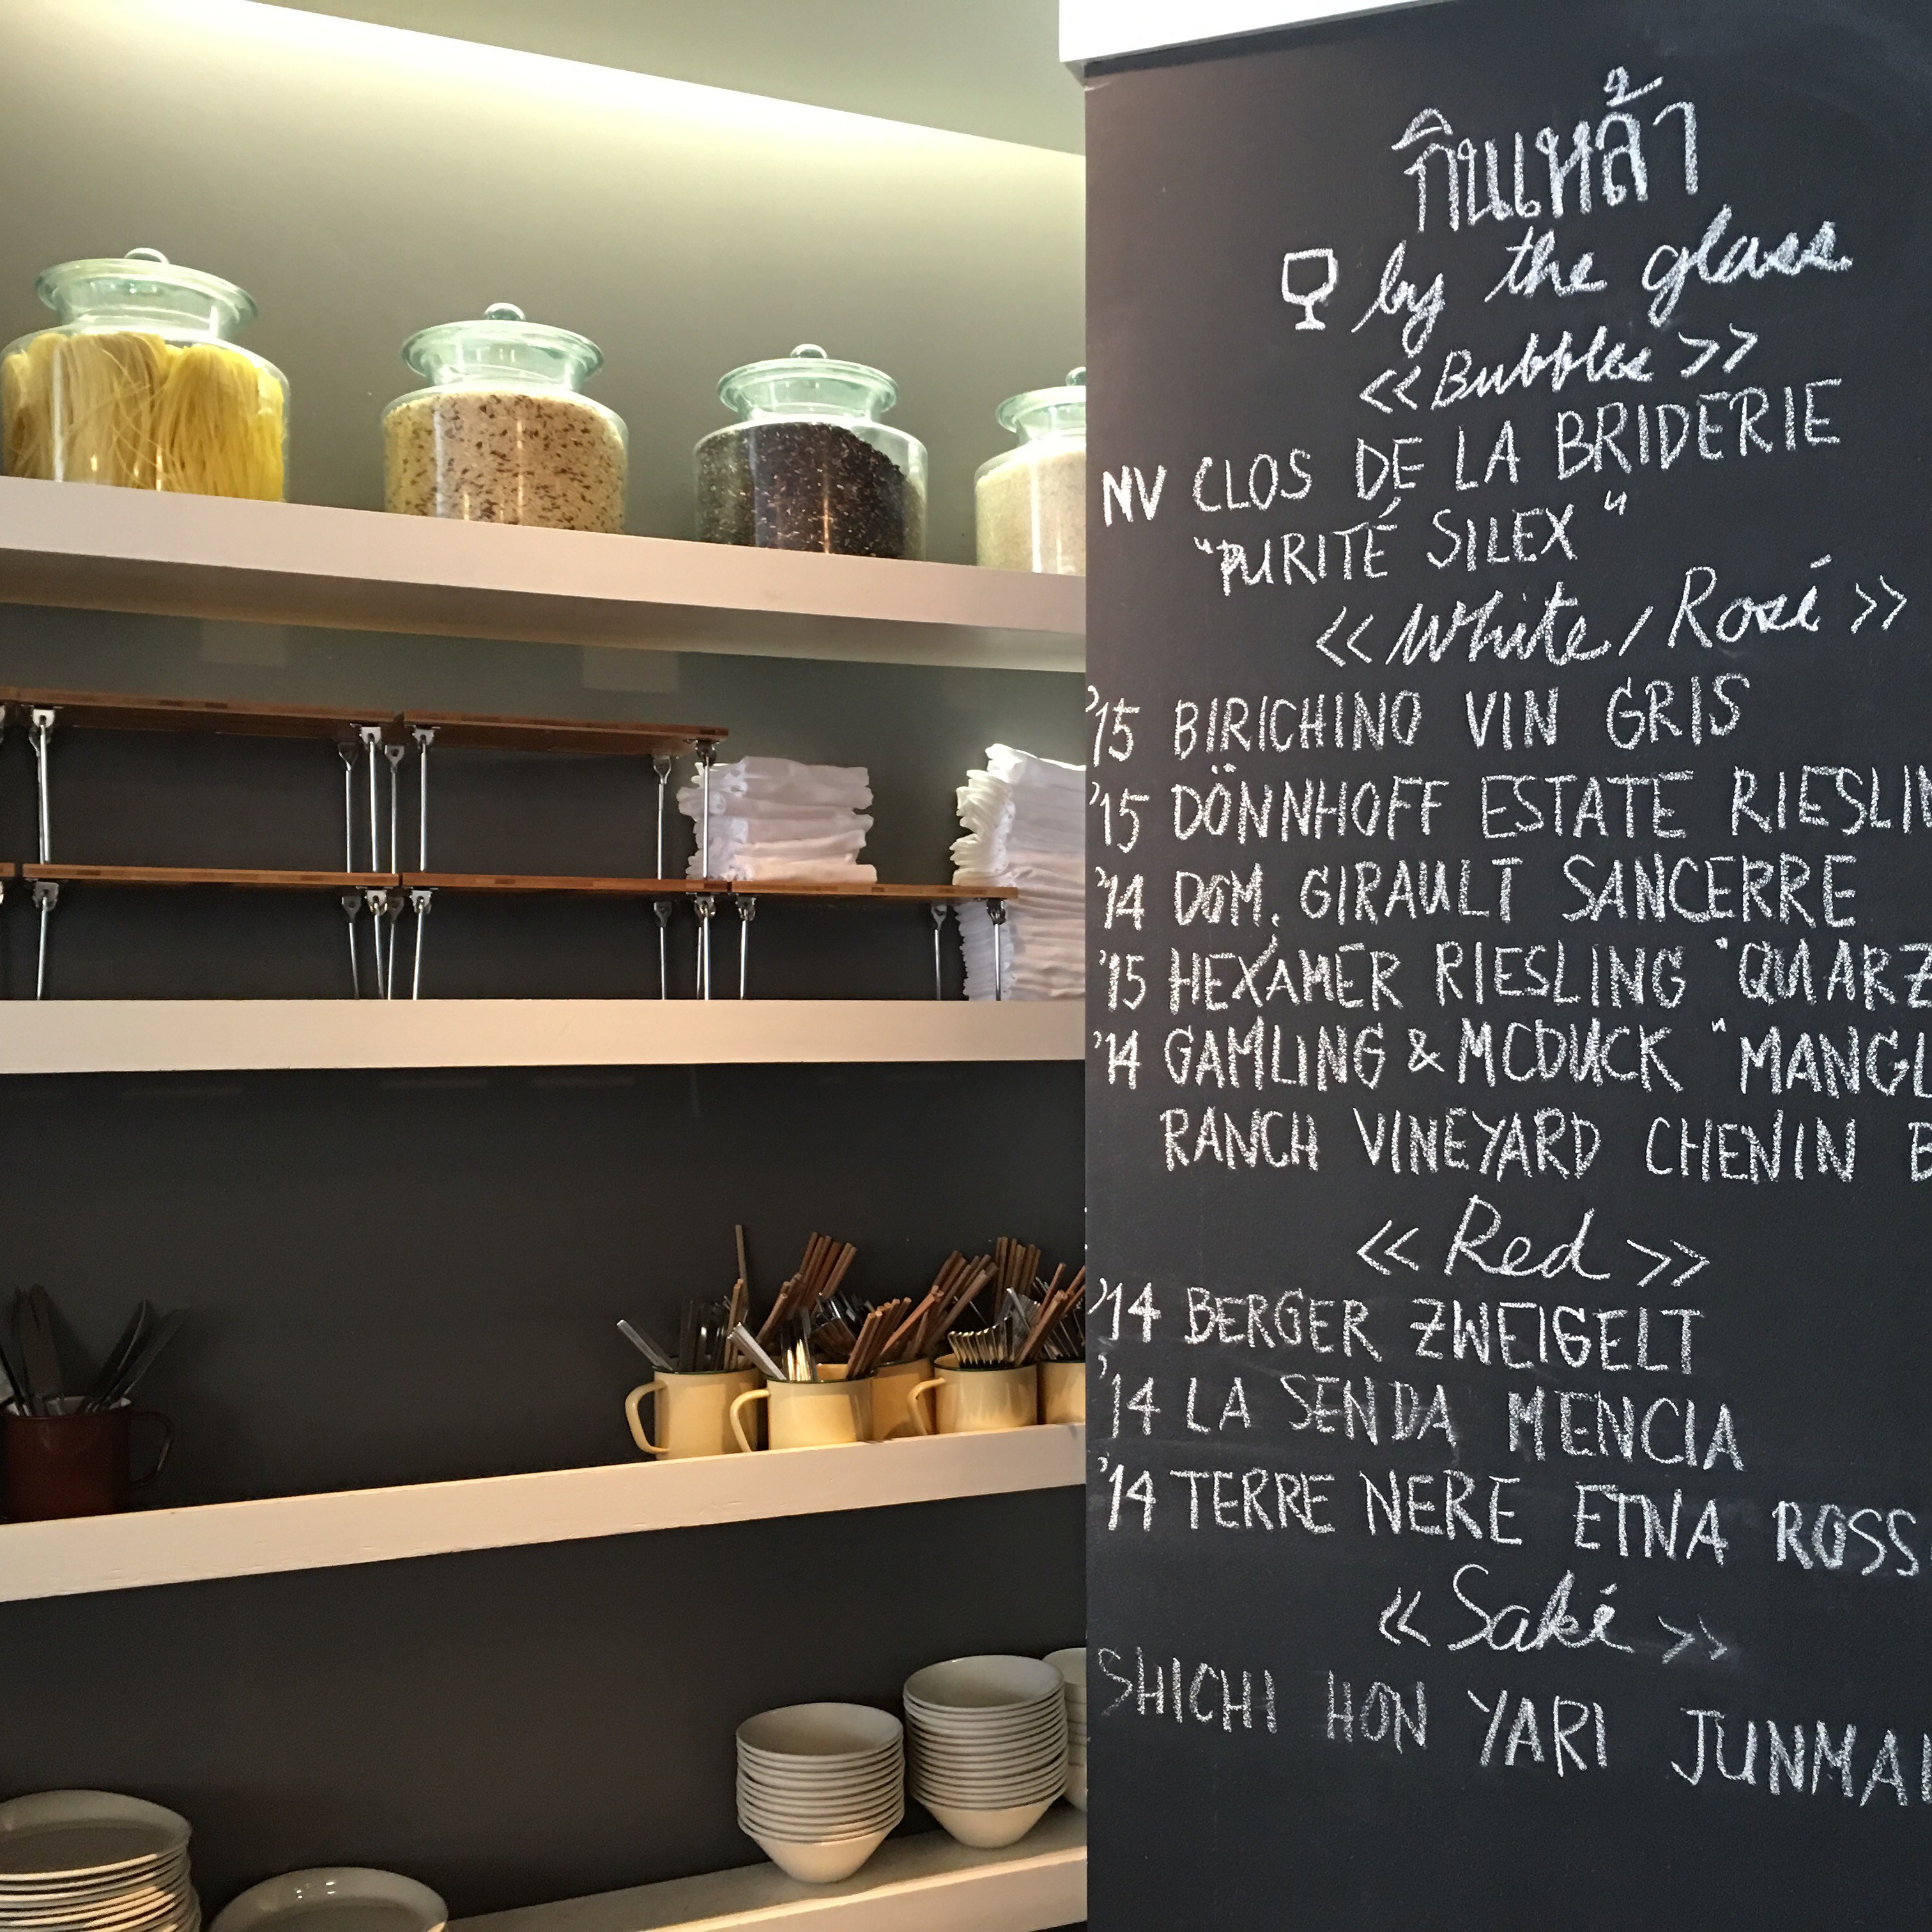 กินเหล้า
by the glass
<<Bubbles>>
NV CLOS DE LA BRIDERIE
"PURITÉ SILEX"
<<White/Rosé>>
'15 BIRICHINO VIN GRIS
'15 DÖNNHOFF ESTATE RIESLIN
'14 DOM. GIRAULT SANCERRE
'15 HEXAMER RIESLING "QUARZ
'14 GAMLING & MCDUCK "MANGL
RANCH VINEYARD CHENIN B
<<Red>>
'14 BERGER ZWEIGELT
'14 LA SENDA MENCIA
'14 TERRE NERE ETNA ROSS
<<Saké>>
SHICHI HON YARI JUNMAI